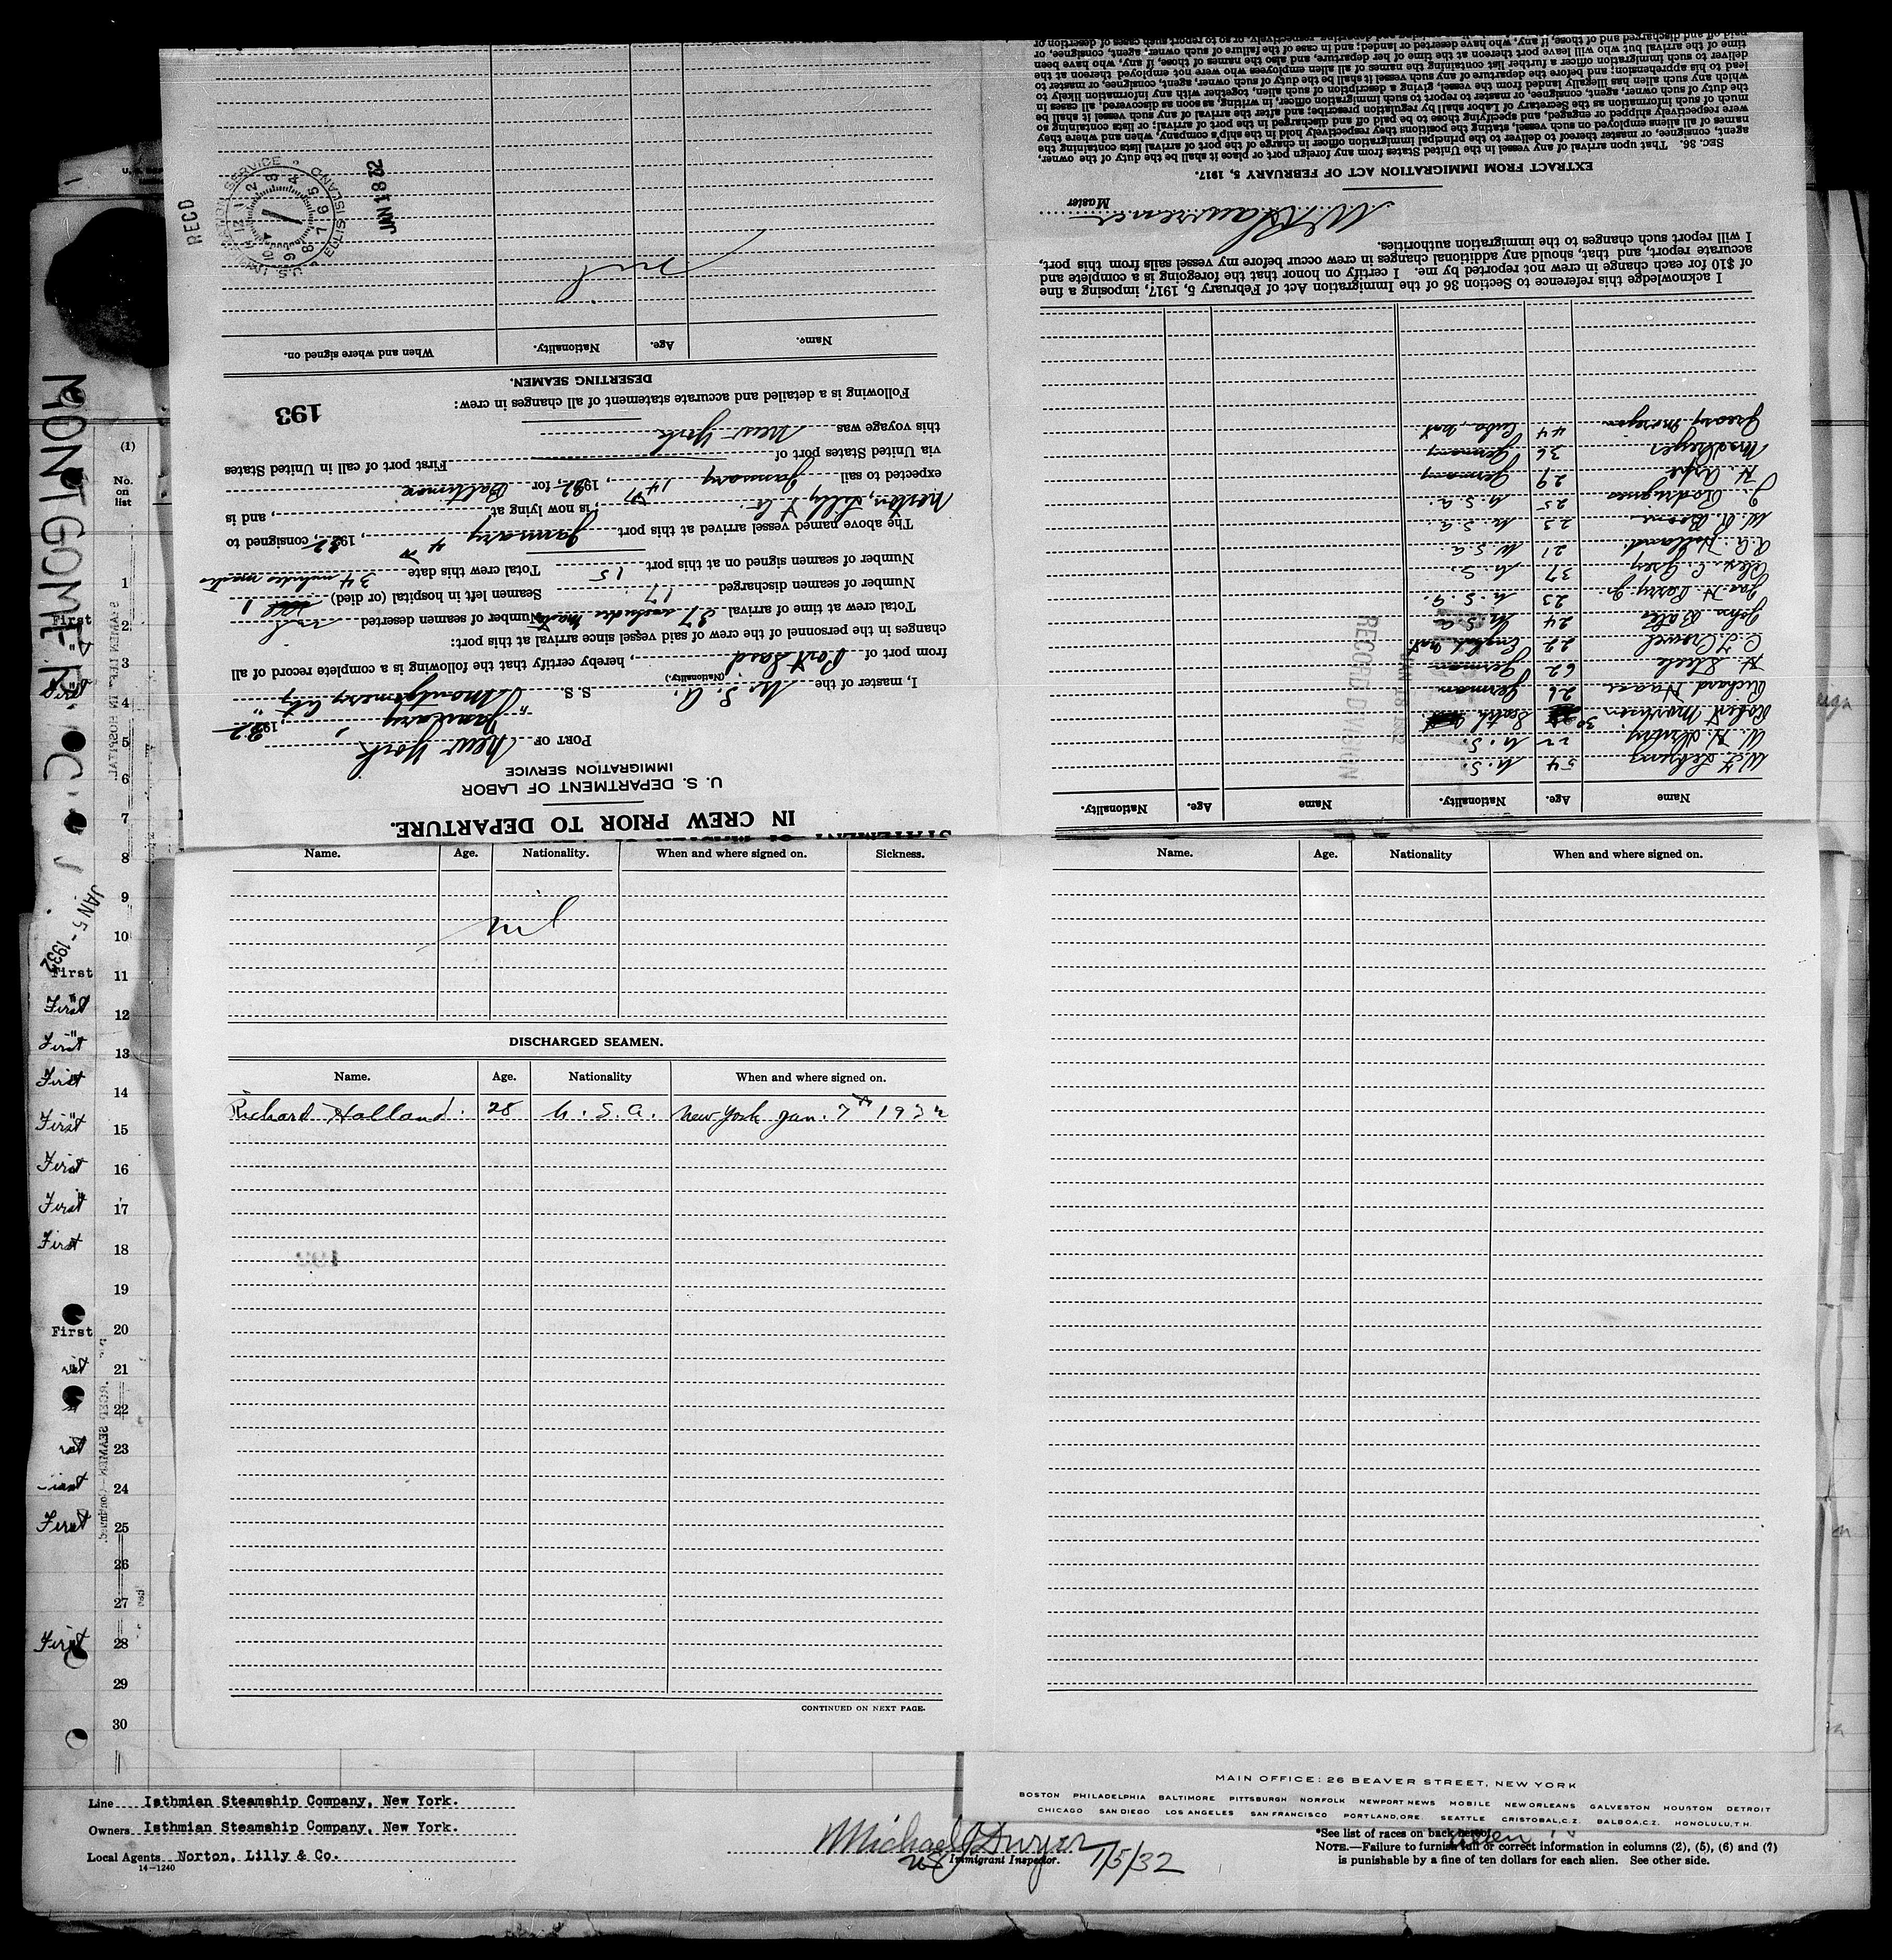 STATEMENT OF MASTER OF
IN CREW PRIOR TO DEPARTURE.
U. S. DEPARTMENT OF LABOR
IMMIGRATION SERVICE
PORT OF New York
January, 1932
I, master of the U. S. A. S. S. Montgomery City
(Nationality.)
from port of Port Said, hereby certify that the following is a complete record of all
changes in the personnel of the crew of said vessel since arrival at this port:
Total crew at time of arrival 37 includes master Number of seamen deserted nil
Number of seamen discharged 17 Seamen left in hospital (or died) 1
Number of seamen signed on at this port 15 Total crew this date 34 includes master
The above named vessel arrived at this port January 4th, 1932, consigned to
Norton, Lilly & Co., is now lying at , and is
expected to sail January 14, 1932, for Baltimore
via United States port of First port of call in United States
this voyage was New York
Following is a detailed and accurate statement of all changes in crew:
193
DESERTING SEAMEN.
Name. Age. Nationality. When and where signed on.
nil
RECD
IMMIGRATION SERVICE
ELLIS ISLAND
JAN 18 32
Name Age. Nationality. Name Age. Nationality.
54 U. S.
W. H.
Robert 30
Richard Haase 26 German
H. Thiele 62 German
C. J. 22
John Bates 24 U. S. A.
Jas. H. Barry Jr 23 U. S. A.
Alex. C. Grey 37 U. S.
R. A. Holland 21 U. S. A.
W. R. 23 U. S. A.
J. Rodrigues 25 U. S. A.
H. 29 Germany
36 Germany
44 Cuba,
RECORD DIVISION
JAN 18 1932
I acknowledge this reference to Section 36 of the Immigration Act of February 5, 1917, imposing a fine
of $10 for each change in crew not reported by me. I certify on honor that the foregoing is a complete and
accurate report, and that, should any additional changes in crew occur before my vessel sails from this port,
I will report such changes to the immigration authorities.
Lawrence Master
EXTRACT FROM IMMIGRATION ACT OF FEBRUARY 5, 1917.
SEC. 36. That upon arrival of any vessel in the United States from any foreign port or place it shall be the duty of the owner,
agent, consignee, or master thereof to deliver to the principal immigration officer in charge of the port of arrival lists containing the
names of all aliens employed on such vessel, stating the positions they respectively hold in the ship's company, when and where they
were respectively shipped or engaged, and specifying those to be paid off and discharged in the port of arrival; or lists containing so
much of such information as the Secretary of Labor shall by regulation prescribe; and after the arrival of any such vessel it shall be
the duty of such owner, agent, consignee, or master to report to such immigration officer, in writing, as soon as discovered, all cases in
which any such alien has illegally landed from the vessel, giving a description of such alien, together with any information likely to
lead to his apprehension; and before the departure of any such vessel it shall be the duty of such owner, agent, consignee, or master to
deliver to such immigration officer a further list containing the names of all alien employees who were not employed thereon at the
time of the arrival but who will leave port thereon at the time of her departure, and also the names of those, if any, who have been
paid off and discharged and of those, if any, who have deserted or landed; and in case of the failure of such owner, agent, consignee, or
MONTGOMERY CITY
JAN 5 - 1932
(1)
No.
on
list
First
1
2
3
4
5
6
7
8
9
10
First 11
First 12
First 13
First 14
First 15
First 16
First 17
First 18
19
First 20
21
22
23
24
First 25
26
27
First 28
29
30
Name. Age. Nationality. When and where signed on. Sickness.
nil
DISCHARGED SEAMEN.
Name. Age. Nationality When and where signed on.
Richard Holland. 28 U. S. A. New York Jan. 7th 1932
CONTINUED ON NEXT PAGE.
Name. Age. Nationality When and where signed on.
MAIN OFFICE: 26 BEAVER STREET, NEW YORK
BOSTON PHILADELPHIA BALTIMORE PITTSBURGH NORFOLK NEWPORT NEWS MOBILE NEW ORLEANS GALVESTON HOUSTON DETROIT
CHICAGO SAN DIEGO LOS ANGELES SAN FRANCISCO PORTLAND, ORE. SEATTLE CRISTOBAL, C.Z. BALBOA, C.Z. HONOLULU, T.H.
Line Isthmian Steamship Company, New York.
Owners Isthmian Steamship Company, New York.
Local Agents Norton, Lilly & Co.
14—1240
Michael Dwyer
Immigrant Inspector. 1/5/32
*See list of races on back hereof.
NOTE.—Failure to furnish full or correct information in columns (2), (5), (6) and (7)
is punishable by a fine of ten dollars for each alien. See other side.